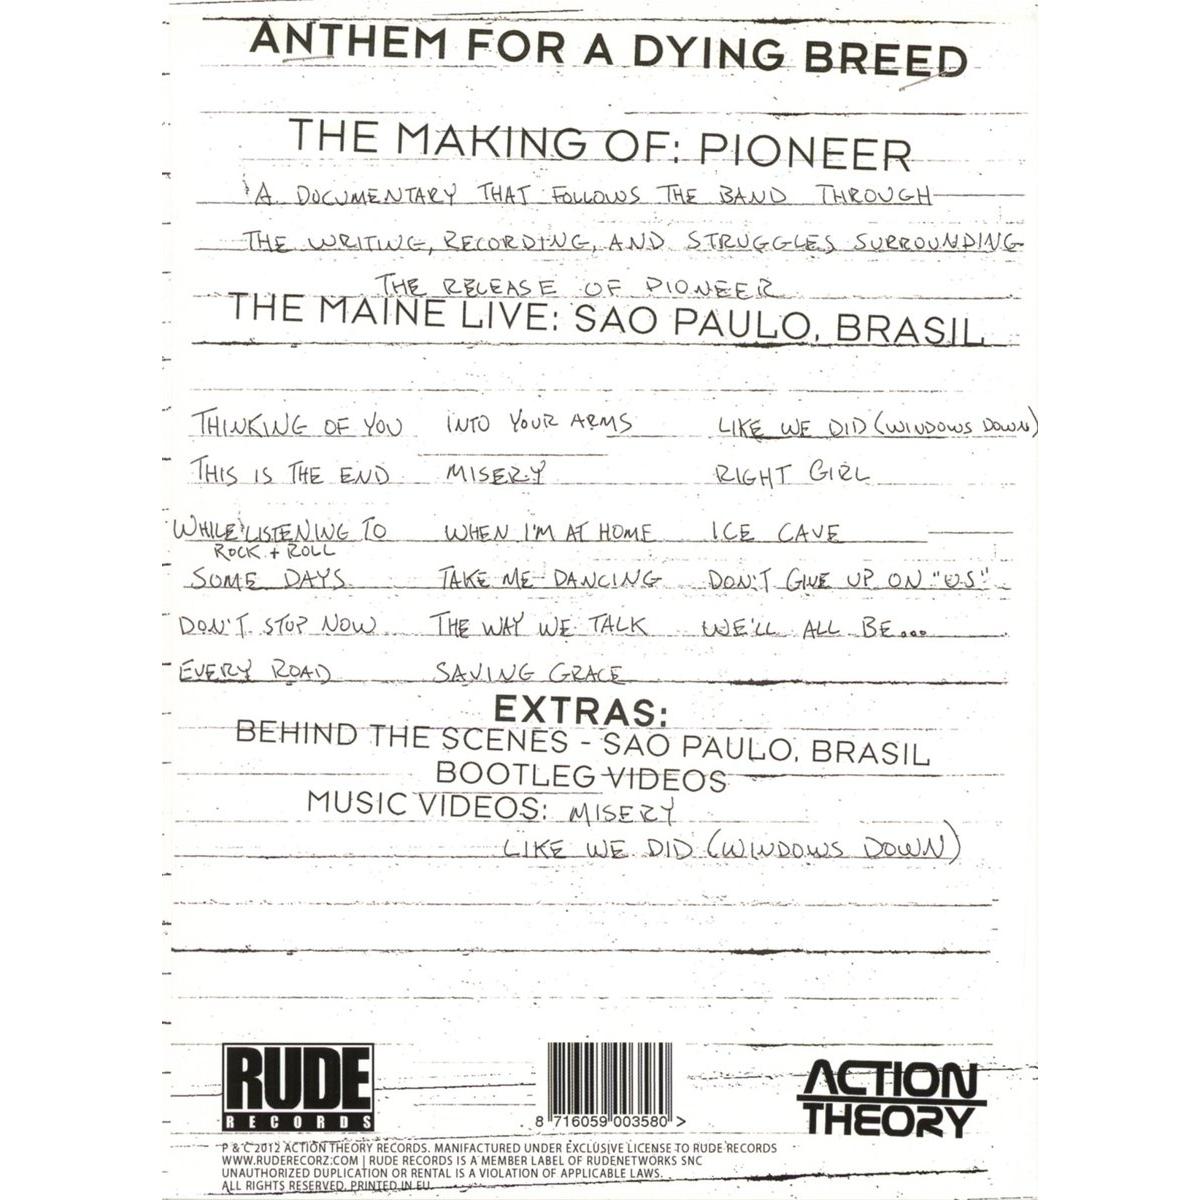 ANTHEM FOR A DYING BREED
THE MAKING OF: PIONEER
A DOCUMENTARY THAT FOLLOWS THE BAND THROUGH
THE WRITING, RECORDING, AND STRUGGLES SURROUNDING
THE RELEASE OF PIONEER
THE MAINE LIVE: SAO PAULO, BRASIL
THINKING OF YOU INTO YOUR ARMS LIKE WE DID (WINDOWS DOWN)
THIS IS THE END MISERY RIGHT GIRL
WHILE LISTENING TO WHEN I'M AT HOME ICE CAVE
ROCK + ROLL
SOME DAYS TAKE ME DANCING DON'T GIVE UP ON "US"
DON'T STOP NOW THE WAY WE TALK WE'LL ALL BE...
EVERY ROAD SAVING GRACE
EXTRAS:
BEHIND THE SCENES - SAO PAULO, BRASIL
BOOTLEG VIDEOS
MUSIC VIDEOS: MISERY
LIKE WE DID (WINDOWS DOWN)
RUDE
RECORDS
8 716059 003580 >
ACTION
THEORY
P & C 2012 ACTION THEORY RECORDS. MANIFACTURED UNDER EXCLUSIVE LICENSE TO RUDE RECORDS
WWW.RUDERECORZ.COM | RUDE RECORDS IS A MEMBER LABEL OF RUDENETWORKS SNC
UNAUTHORIZED DUPLICATION OR RENTAL IS A VIOLATION OF APPLICABLE LAWS.
ALL RIGHTS RESERVED. PRINTED IN EU.